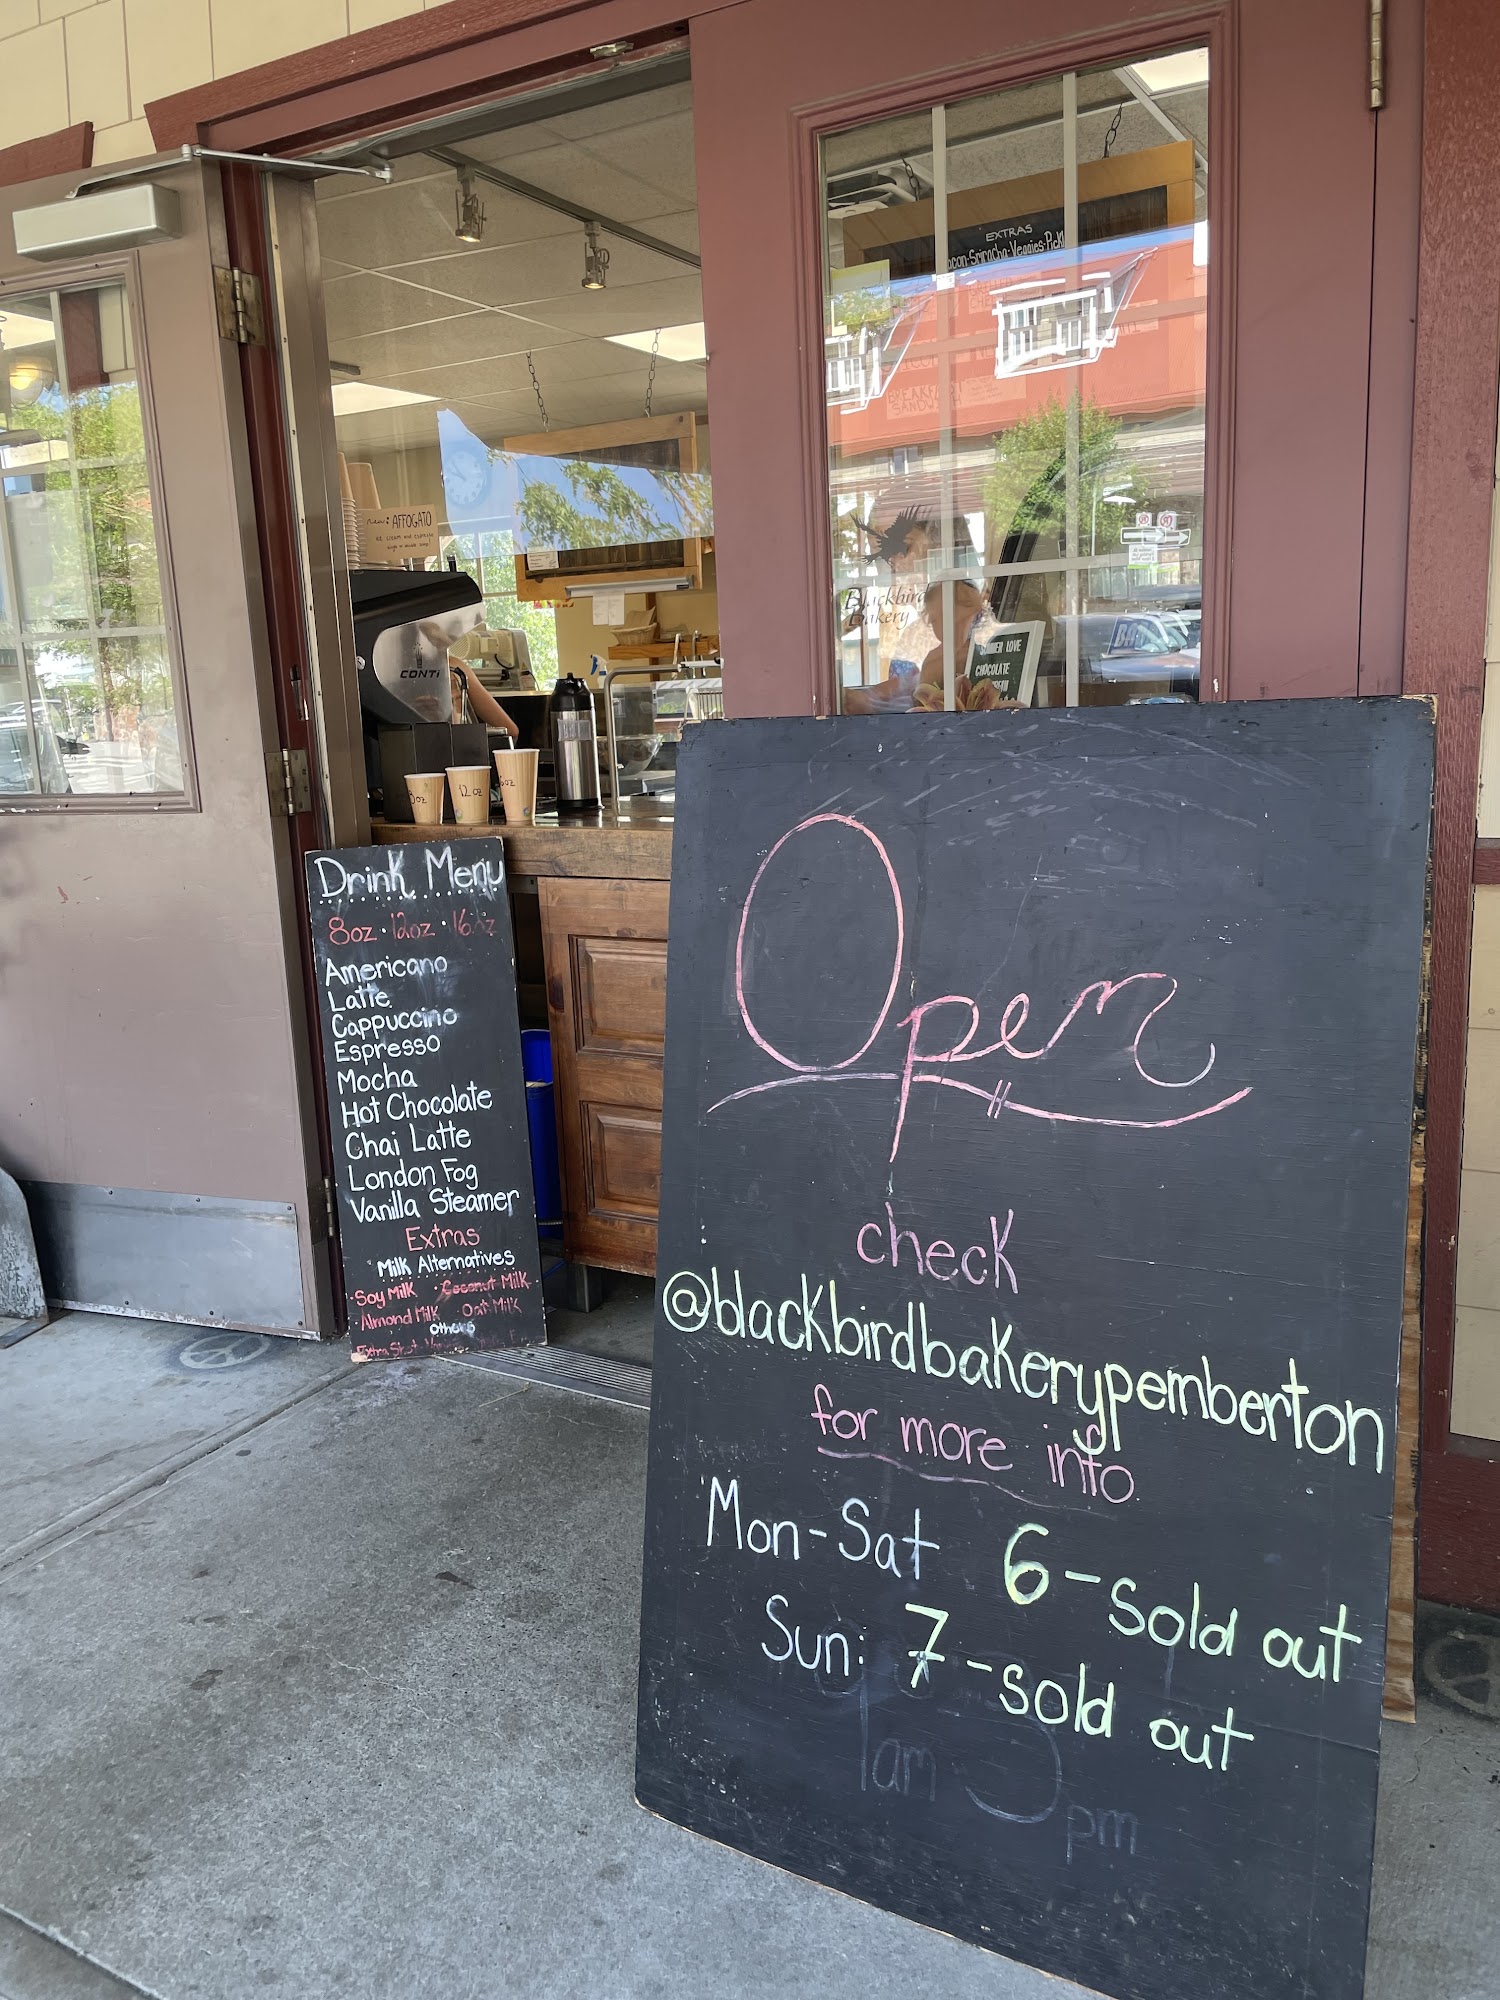 EXTRAS
Sriracha-Veggies-Pickl
new: AFFOGATO
Blackbird
Bakery
CONTI
SUMMER LOVE
CHOCOLATE
8oz
12 oz
16oz
Drink Menu
8oz · 12oz · 16oz
Americano
Latte
Cappuccino
Espresso
Mocha
Hot Chocolate
Chai Latte
London Fog
Vanilla Steamer
Extras
Milk Alternatives
·Soy Milk ·Coconut Milk
·Almond Milk ·Oat Milk
Others
Extra Shot
Open
check
@blackbirdbakerypemberton
for more info
Mon-Sat 6-sold out
Sun: 7-sold out
am 3pm